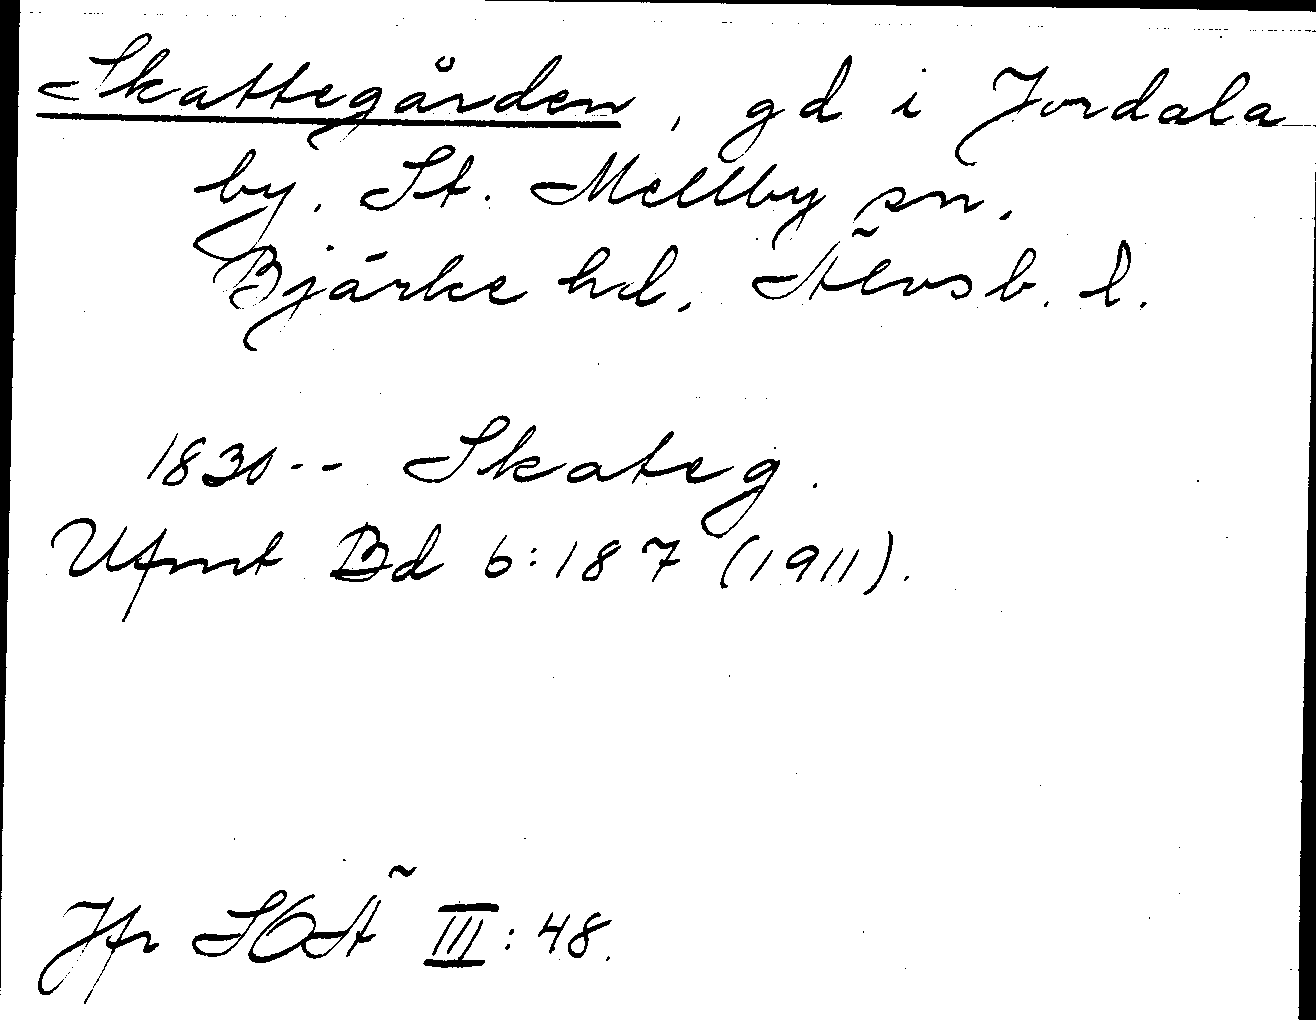 Skattegården, gd i Jordala
by, St. Mellby sn,
Bjärke hd, Älvsb. l.
1830-- Skateg.
Ufmt Bd 6:187 (1911).
Jfr SOÄ III:48.